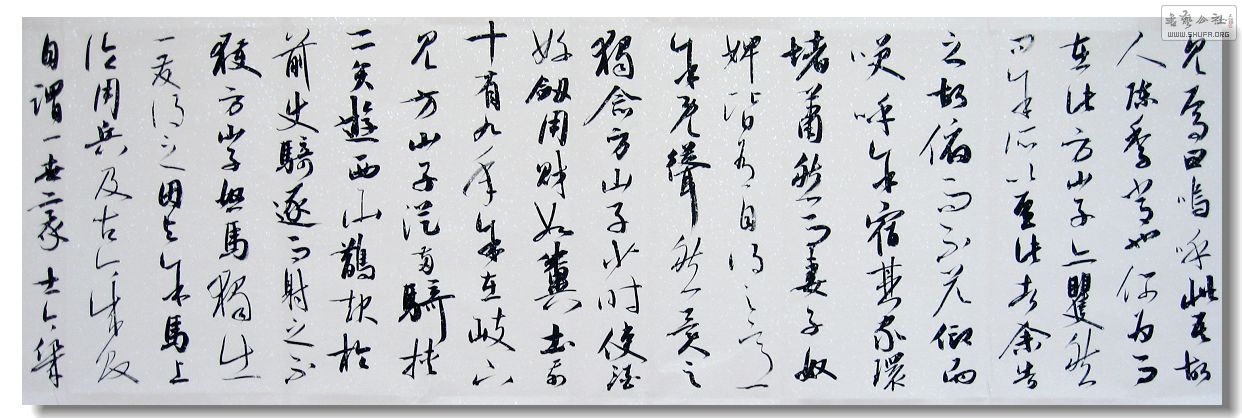 書藝公社
WWW.SHUFA.ORG
見焉曰嗚呼此吾故
人陳季常也何為而
在此方山子亦矍然
問余所以至此者余告
之故俯而不答仰而
笑呼余宿其家環
堵蕭然而妻子奴
婢皆有自得之意
余既聳然異之
獨念方山子少時使酒
好劔用財如糞土前
十有九年余在岐下
見方山子從兩騎挾
二矢遊西山鵲起於
前使騎逐而射之不
獲方山子怒馬獨出
一發得之因與余馬上
論用兵及古今成敗
自謂一世之豪士今幾